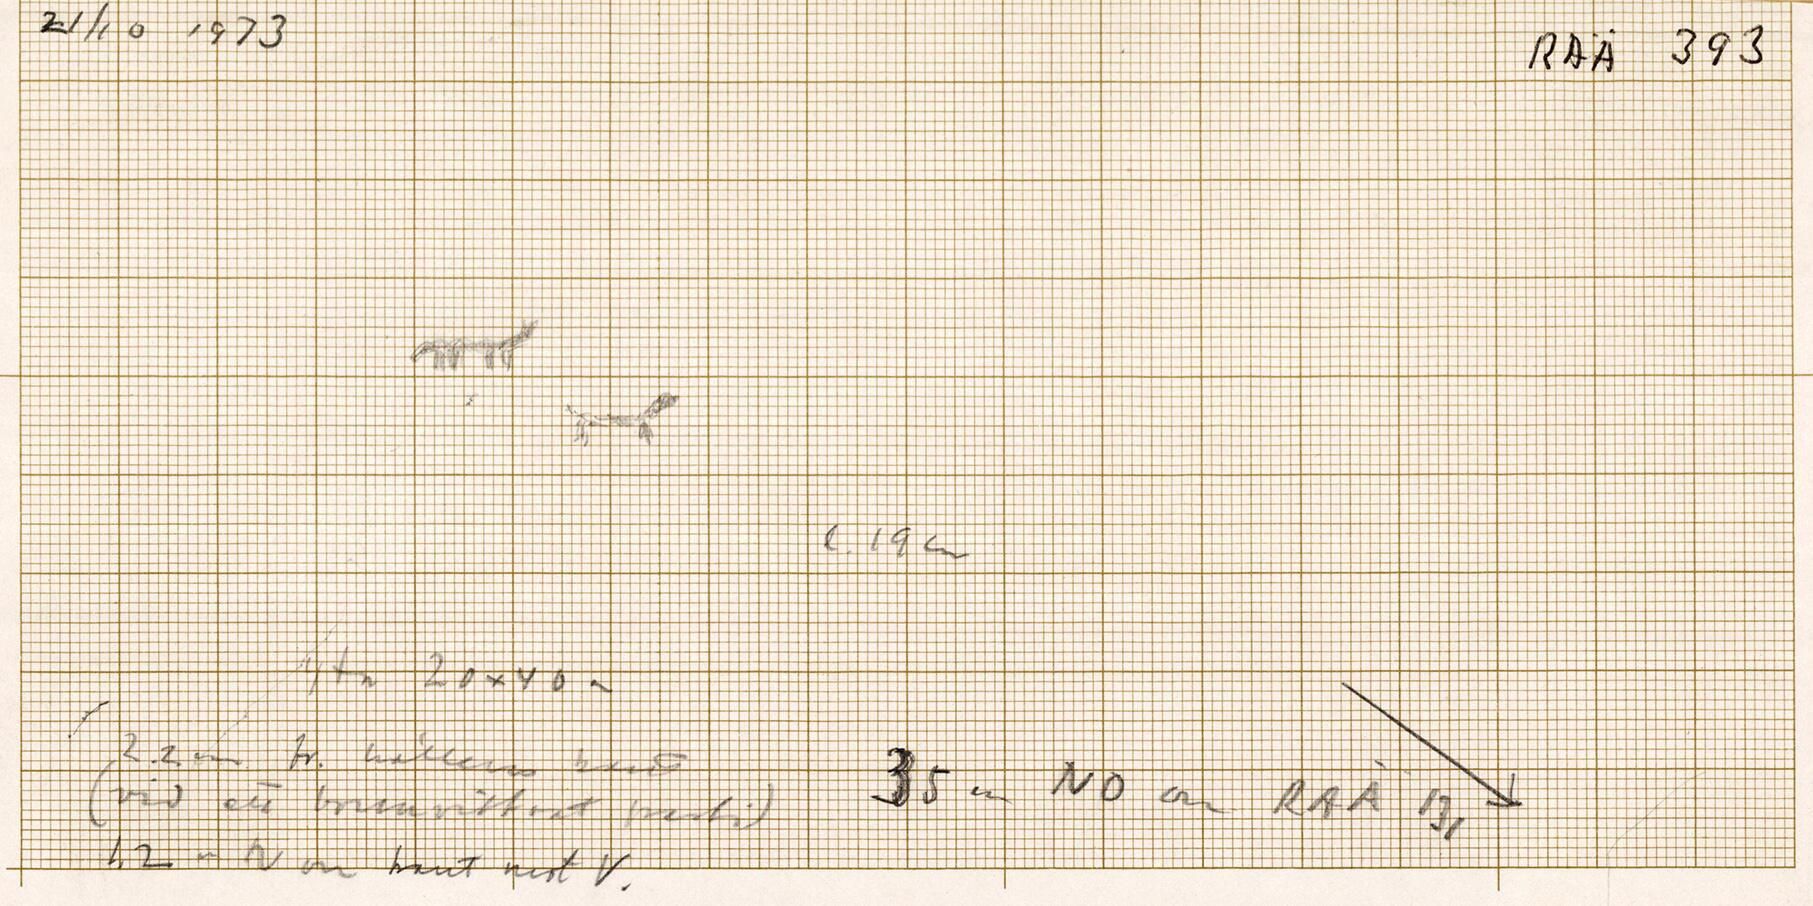 21/10 1973
RAÄ 393
l. 19 cm
Yta 20x40
2.2 m fr. hällens kant
(vid ett parti)
35 m NO om RAÄ 131
1,2 m N om kant mot V.